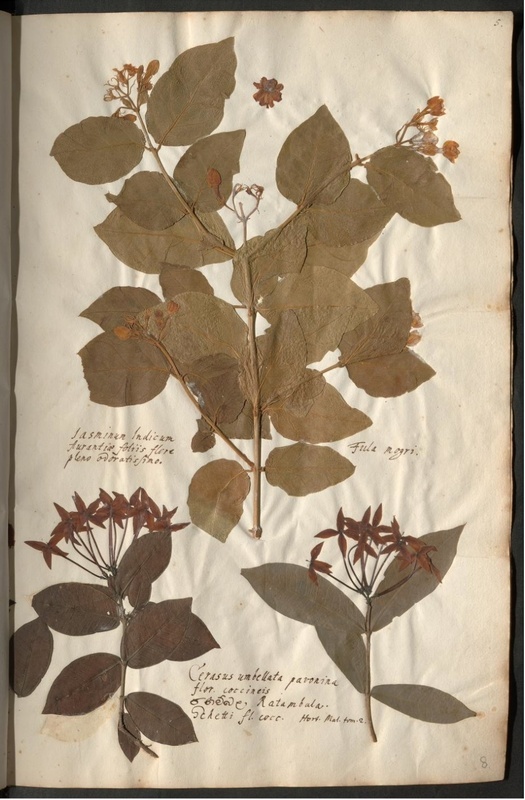 5.
Jasminum Indicum
Aurantiæ foliis flore
pleno odoratissimo.
Fula mogri.
Cerasus umbellata pavonina
flor. coccineis
Ratambala.
Schetti fl. cocc. Hort. Mal. tom. 2.
8